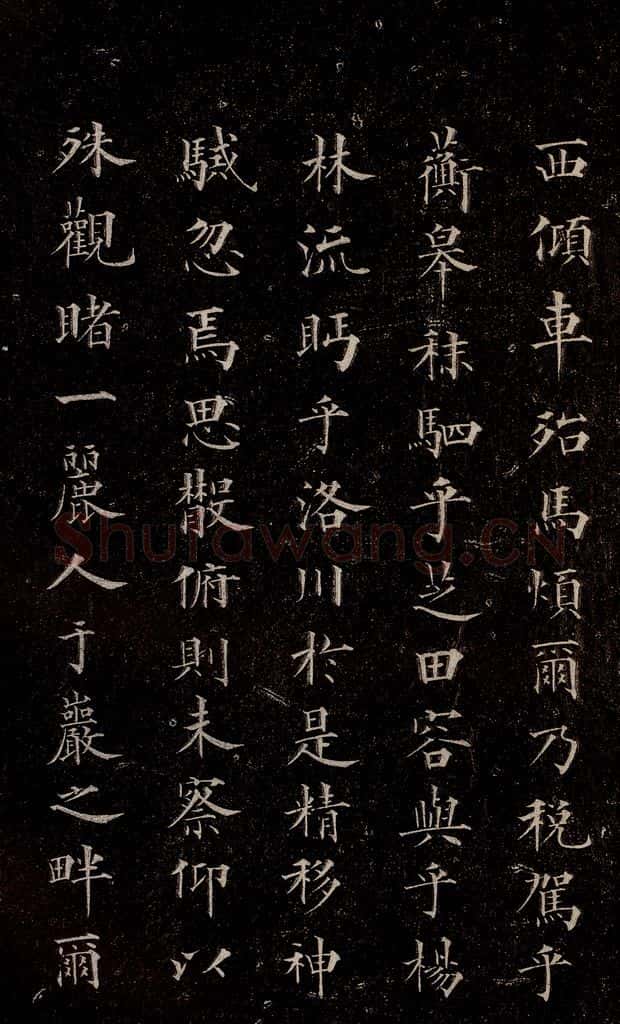 西傾車殆馬煩爾乃税駕乎
蘅皋秣駟乎芝田容與乎楊
林流眄乎洛川於是精移神
駭忽焉思散俯則未察仰以
殊觀睹一麗人于巖之畔爾
Shufawang.CN